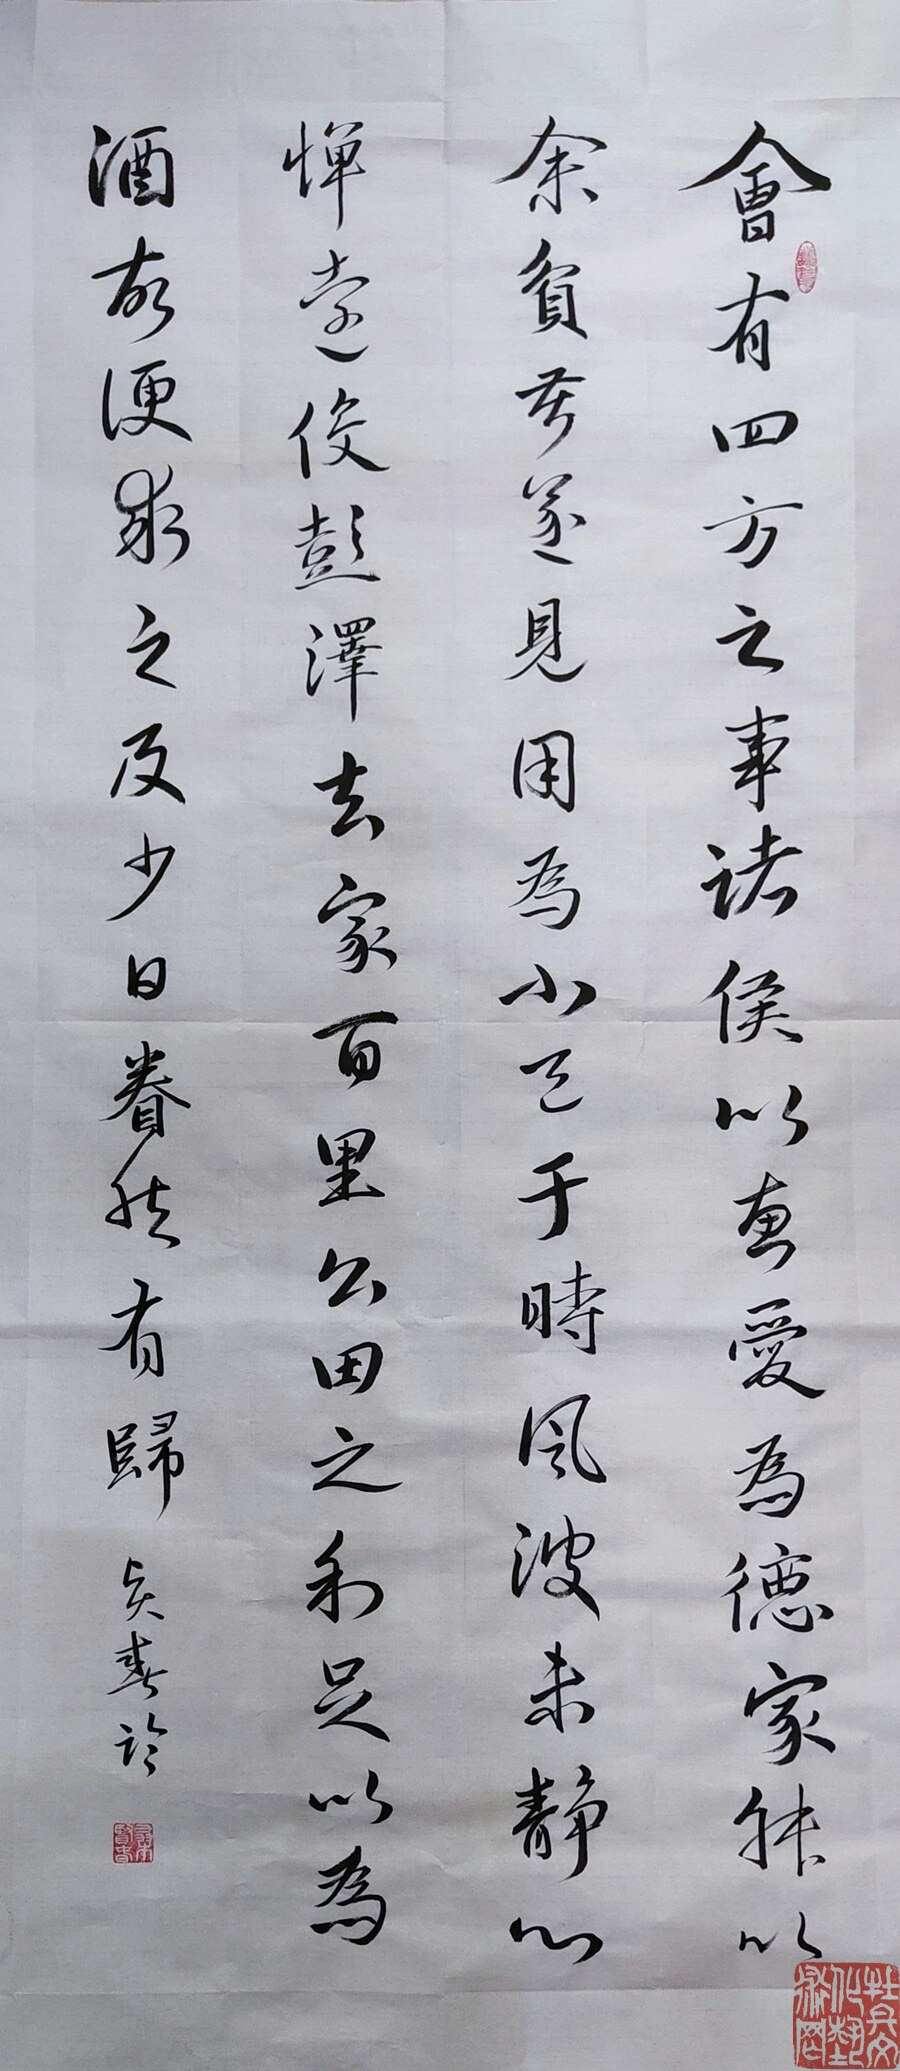 會有四方之事諸侯以惠愛為德家叔以
余貧苦遂見用為小邑于時風波未靜心
憚遠役彭澤去家百里公田之利足以為
酒故便求之及少日眷然有歸